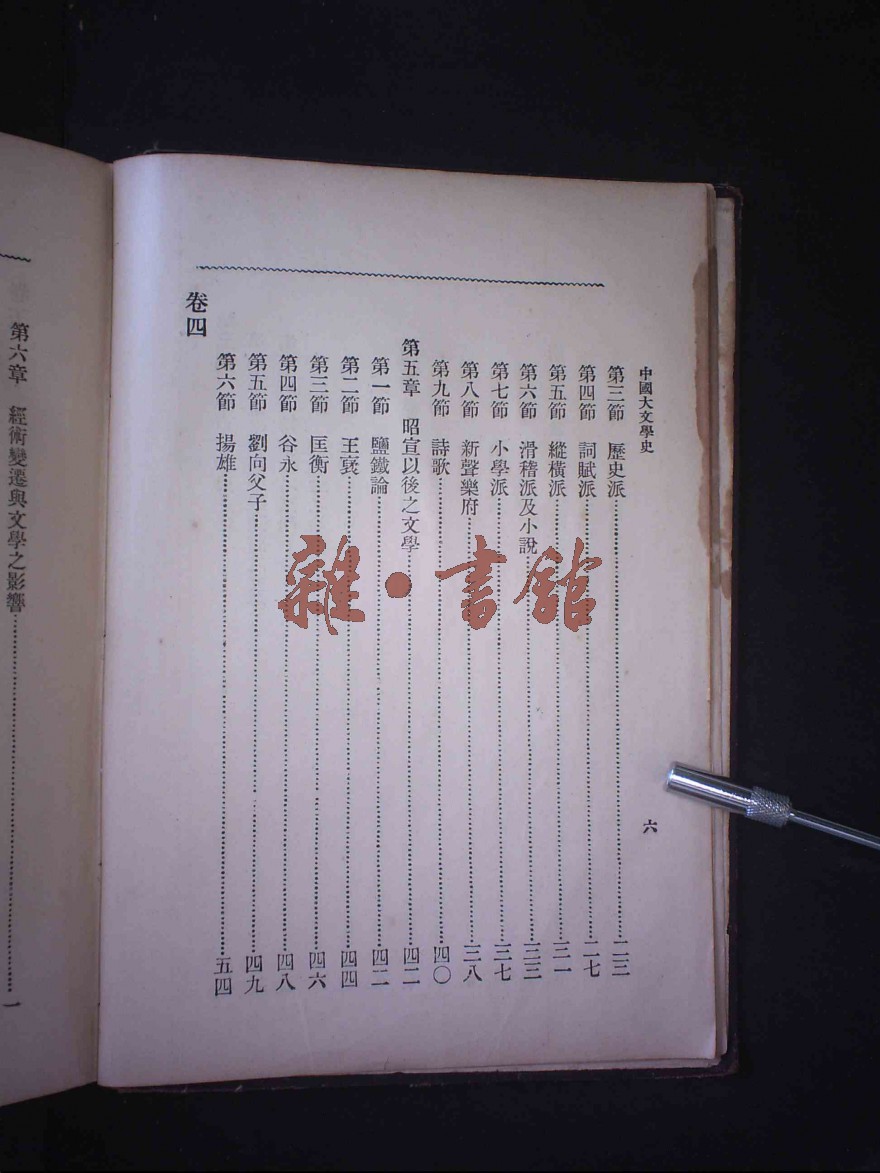 中國大文學史
六
第三節 歷史派……二三
第四節 詞賦派……二七
第五節 縱橫派……三一
第六節 滑稽派及小說……三三
第七節 小學派……三七
第八節 新聲樂府……三八
第九節 詩歌……四〇
第五章 昭宣以後之文學……四二
第一節 鹽鐵論……四二
第二節 王褒……四四
第三節 匡衡……四六
第四節 谷永……四八
第五節 劉向父子……四九
第六節 揚雄……五四
卷四
第六章 經術變遷與文學之影響……一
雜·書館